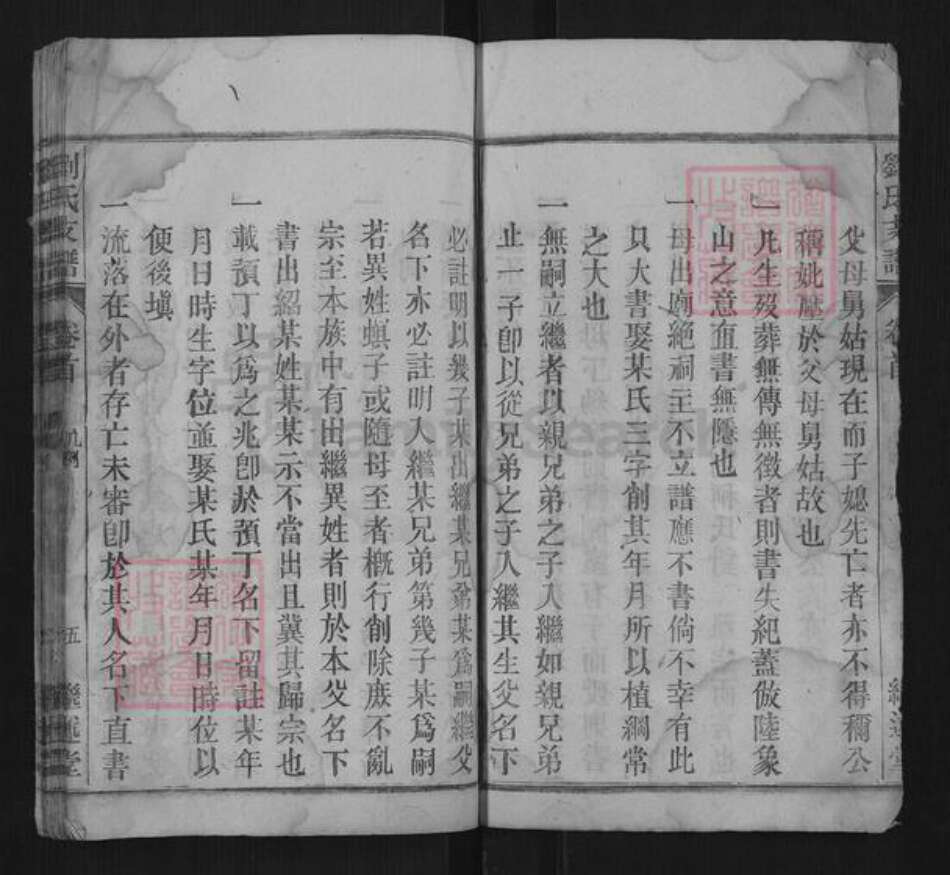 父母舅姑現在而子媳先亡者亦不得稱公
稱妣壓於父母舅姑故也
一凡生歿葬無傳無徵者則書失紀蓋倣陸象
山之意直書無隱也
一母出廟絕祠主不立譜應不書倘不幸有此
只大書娶某氏三字創其年月所以植綱常
之大也
一無嗣立繼者以親兄弟之子入繼如親兄弟
止一子卽以從兄弟之子入繼其生父名下
必註明以幾子某出繼某兄弟某爲嗣繼父
名下亦必註明入繼某兄弟第幾子某爲嗣
若異姓螟子或隨母至者槪行創除庶不亂
宗至本族中有出繼異姓者則於本父名下
書出紹某姓某某示不當出且冀其歸宗也
一載預丁以爲之兆卽於預丁名下留註某年
月日時生字位並娶某氏某年月日時位以
便後塡
一流落在外者存亡未審卽於其人名下直書
劉氏支譜
卷首
凡例
五